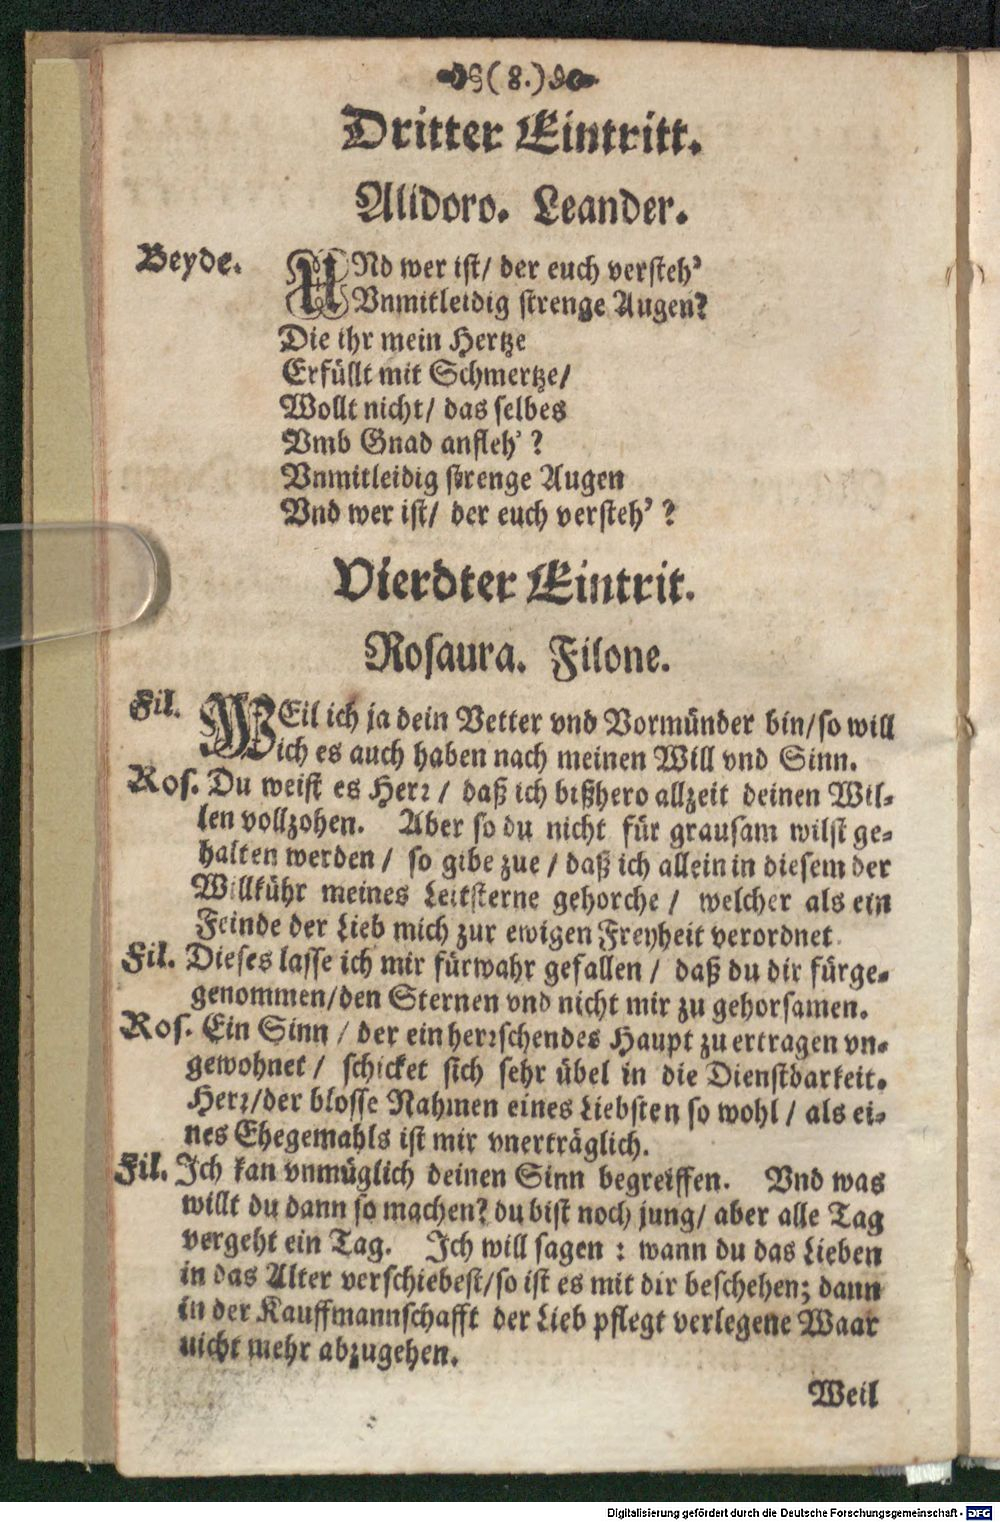 (8.)
Dritter Eintritt.
Alidoro. Leander.
Beyde. UNd wer ist/ der euch versteh'
Vnmitleidig strenge Augen?
Die ihr mein Hertze
Erfüllt mit Schmertze/
Wollt nicht/ das selbes
Vmb Gnad anfleh' ?
Vnmitleidig strenge Augen
Vnd wer ist/ der euch versteh' ?
Vierdter Eintrit.
Rosaura. Filone.
Fil. WEil ich ja dein Vetter vnd Vormünder bin/so will
ich es auch haben nach meinen Will vnd Sinn.
Ros. Du weist es Herr / daß ich bißhero allzeit deinen Wil-
len vollzohen. Aber so du nicht für grausam wilst ge-
halten werden / so gibe zue / daß ich allein in diesem der
Willkühr meines Leitsterne gehorche / welcher als ein
Feinde der Lieb mich zur ewigen Freyheit verordnet.
Fil. Dieses lasse ich mir fürwahr gefallen / daß du dir fürge-
genommen/den Sternen vnd nicht mir zu gehorsamen.
Ros. Ein Sinn / der ein herrschendes Haupt zu ertragen vn-
gewohnet / schicket sich sehr übel in die Dienstbarkeit.
Herr/der blosse Nahmen eines Liebsten so wohl / als ei-
nes Ehegemahls ist mir vnerträglich.
Fil. Ich kan vnmüglich deinen Sinn begreiffen. Vnd was
willt du dann so machen? du bist noch jung/ aber alle Tag
vergeht ein Tag. Ich will sagen : wann du das Lieben
in das Alter verschiebest/so ist es mit dir beschehen; dann
in der Kauffmannschafft der Lieb pflegt verlegene Waar
nicht mehr abzugehen.
Weil
Digitalisierung gefördert durch die Deutsche Forschungsgemeinschaft - DFG